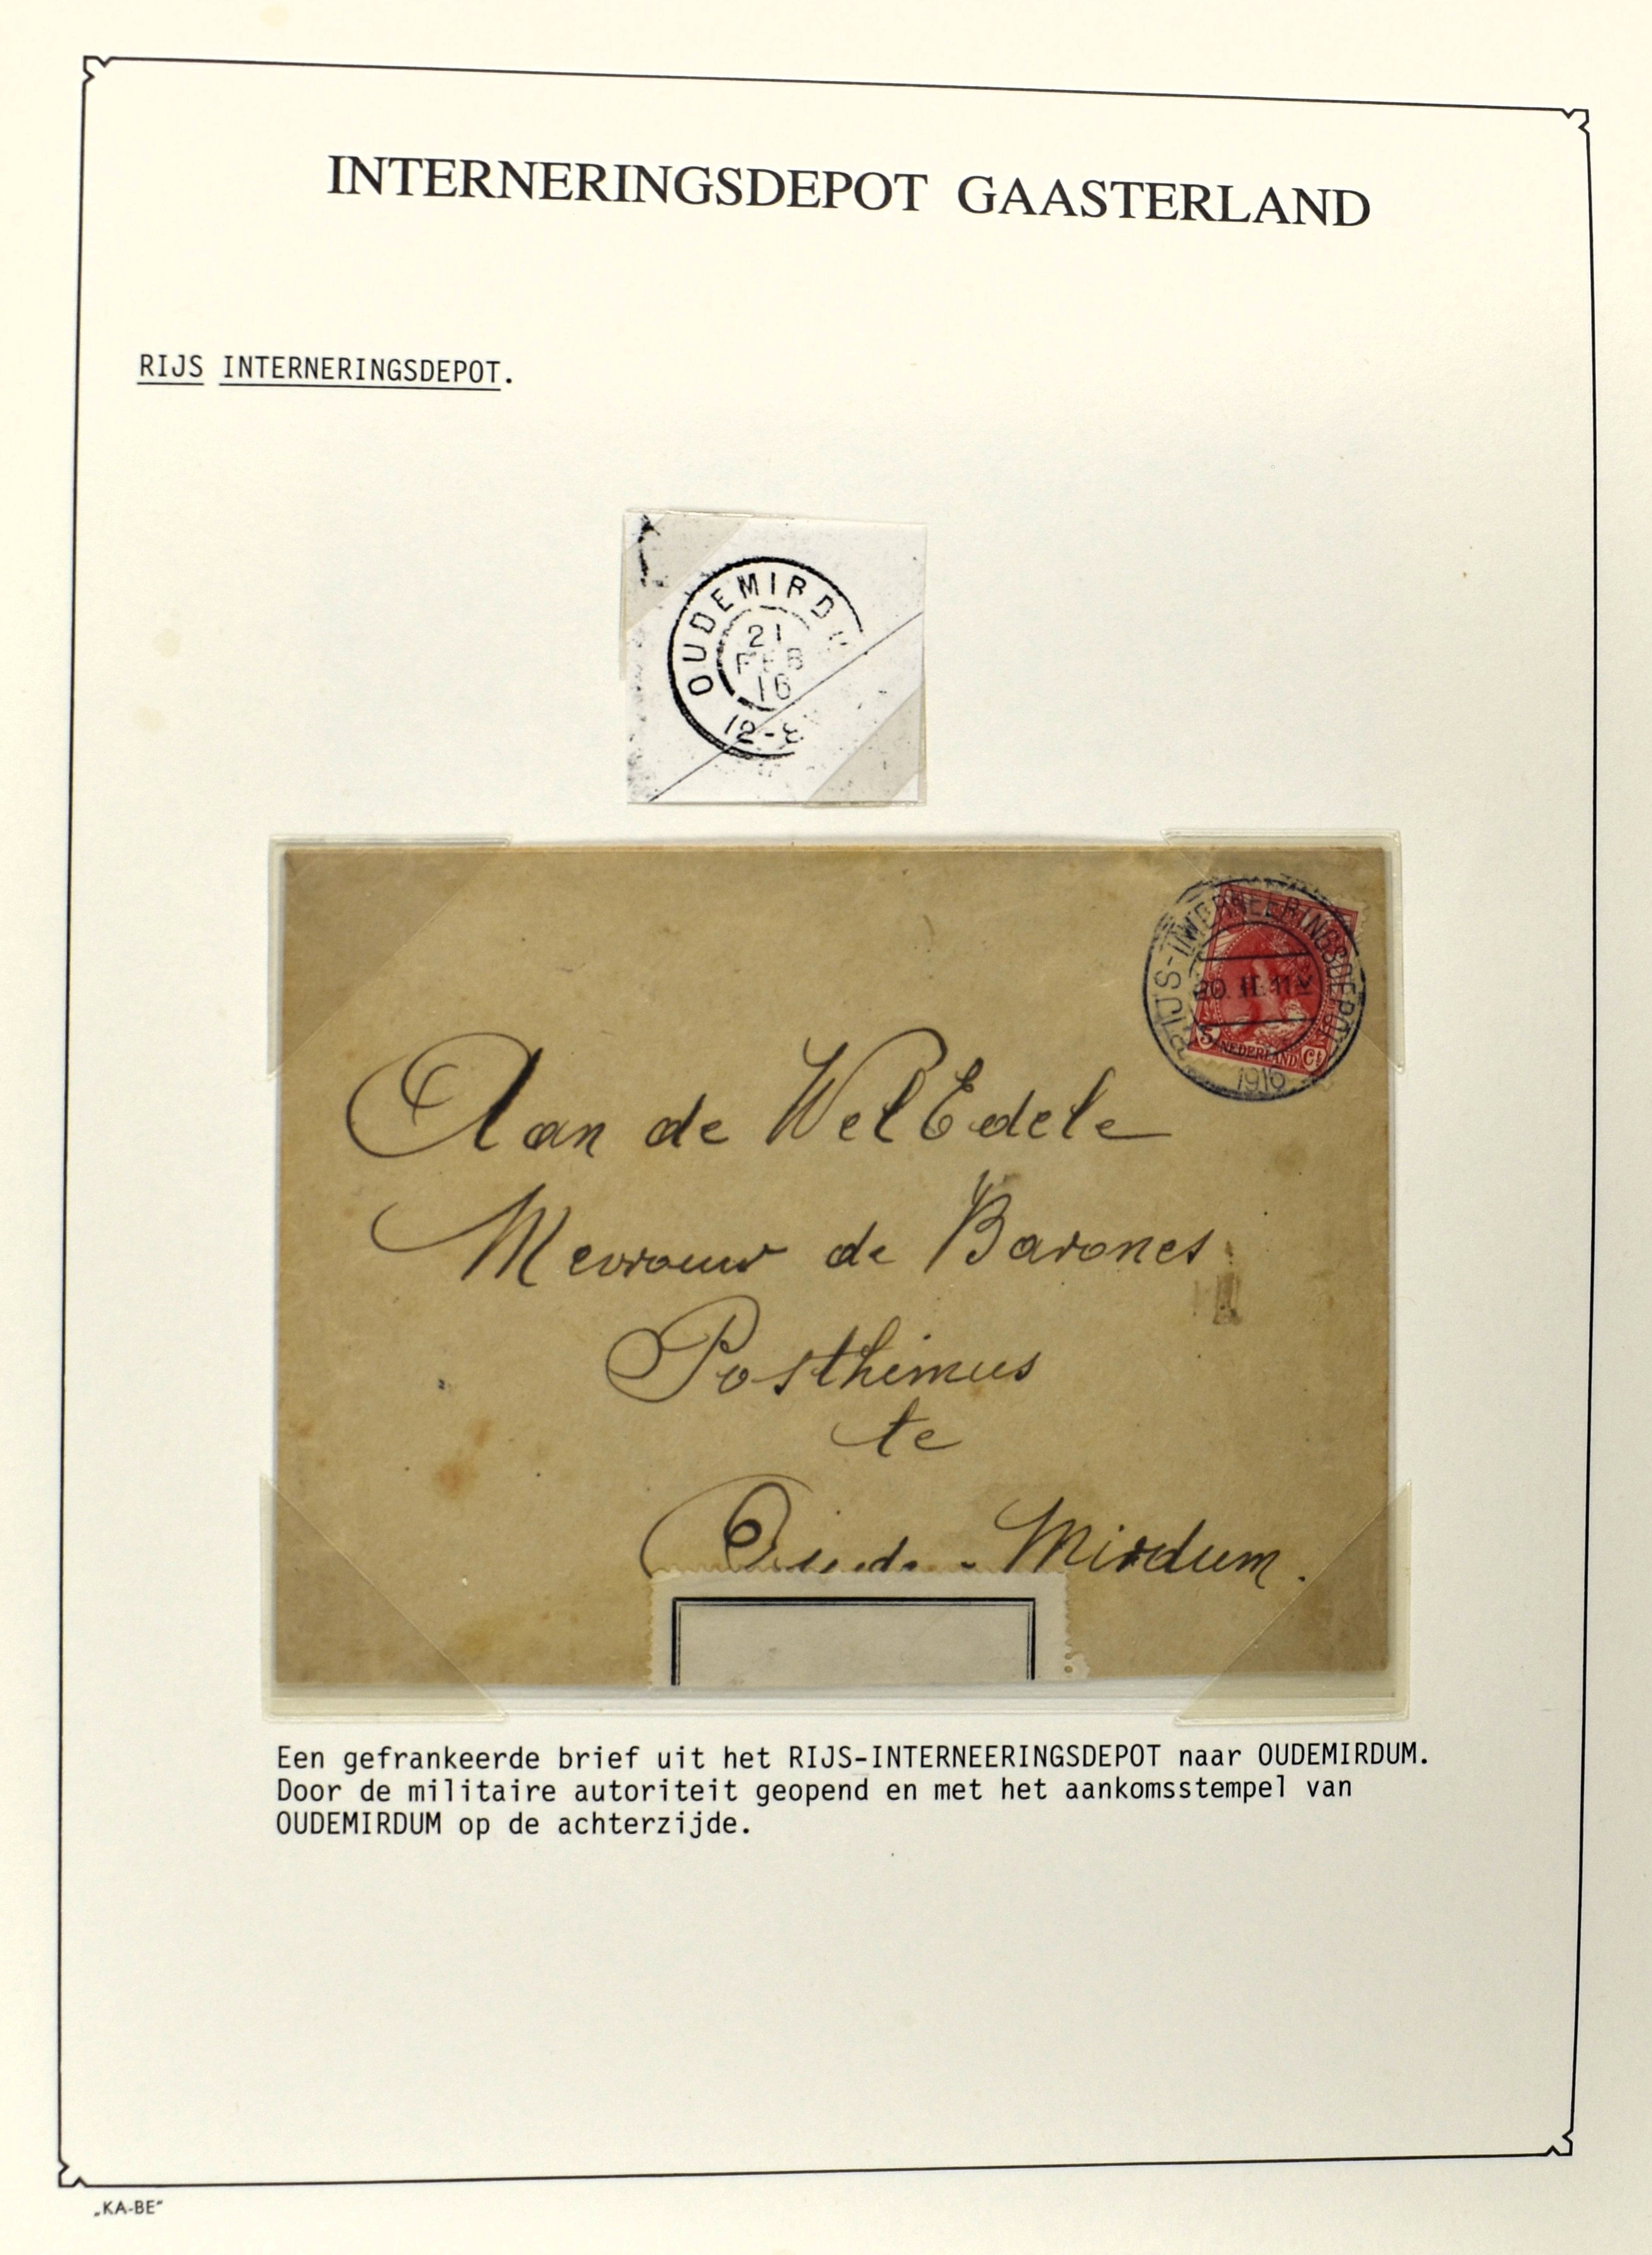 INTERNERINGSDEPOT GAASTERLAND
RIJS INTERNERINGSDEPOT.
OUDEMIRD
21
FEB
16
12-8
RIJS-INTERNEERINGSDEPOT
20.II.11V
1916
5 NEDERLAND Ct
Aan de WelEdele
Mevrouw de Barones
Posthimus
te
Oude-Mirdum.
Een gefrankeerde brief uit het RIJS-INTERNEERINGSDEPOT naar OUDEMIRDUM.
Door de militaire autoriteit geopend en met het aankomsstempel van
OUDEMIRDUM op de achterzijde.
„KA-BE“